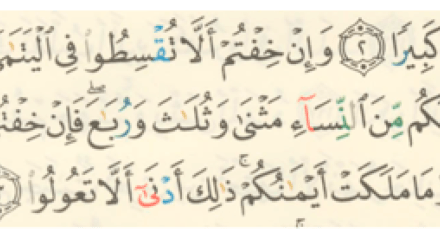 كَبِيرًا ٢ وَإِنْ خِفْتُمْ أَلَّا تُقْسِطُوا فِي الْيَتَمَىٰ
كُم مِّنَ النِّسَآءِ مَثْنَىٰ وَثُلَٰثَ وَرُبَٰعَ ۖ فَإِنْ خِفْتُ
مَا مَلَكَتْ أَيْمَٰنُكُمْ ۚ ذَٰلِكَ أَدْنَىٰٓ أَلَّا تَعُولُوا